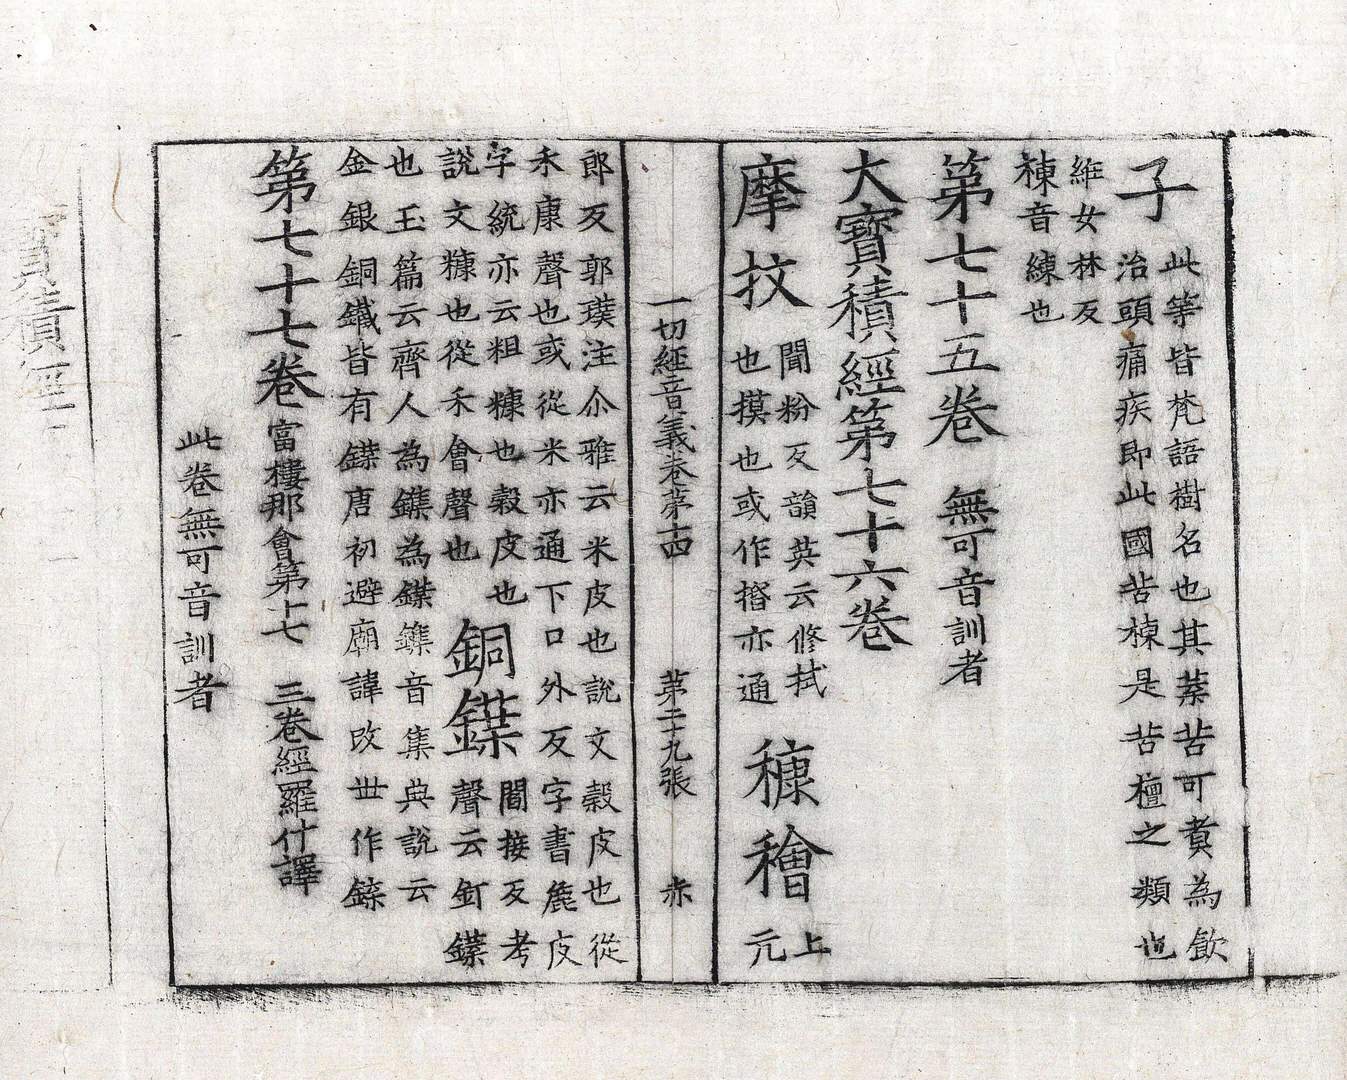 子 此等皆梵語樹名也其葉苦可煮為飲
治頭痛疾即此國苦楝是苦檀之類也
絍女林反
楝音練也
第七十五卷 無可音訓者
大寶積經第七十六卷
摩抆 聞粉反韻英云修拭
也摸也或作㨉亦通
穅穭 上
元
一切經音義卷第十四 第二十九張 赤
郎反郭璞注尒雅云米皮也說文穀皮也從
禾康聲也或從米亦通下口外反字書麁皮
字統亦云粗糠也穀皮也
說文糠也從禾會聲也
銅鍱 閻接反考
聲云釘鍱
也玉篇云齊人為鏶為鍱鏶音集典說云
金銀銅鐵皆有鍱唐初避廟諱改世作鍱
第七十七卷 富樓那會第十七 三卷經羅什譯
此卷無可音訓者
寶積經